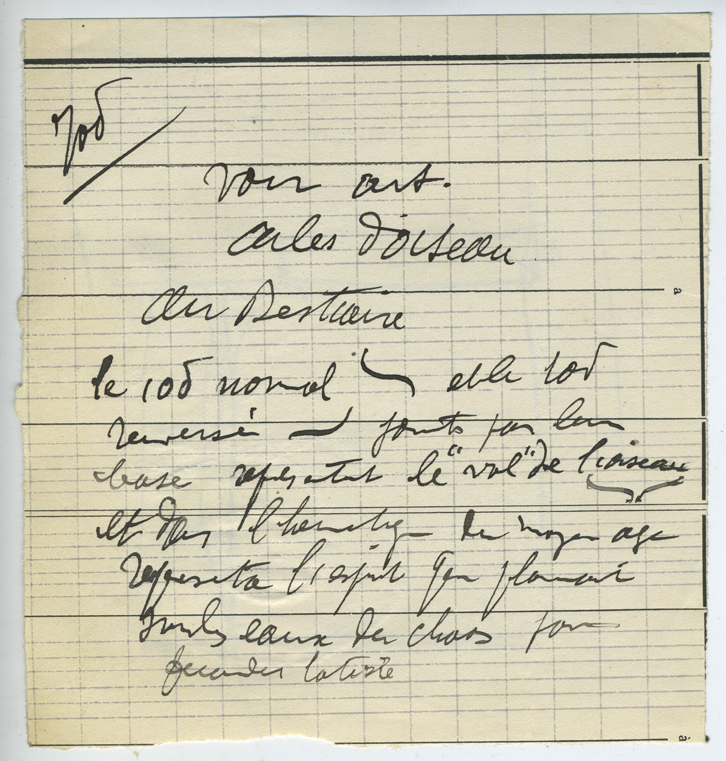 Iod
Voir art.
ailes d'oiseau
du Bestiaire
le iod normal et le iod
renversé joints par leur
base représentent le "vol" de l'oiseau
et dans l'hermétique du moyen age
représenta l'esprit qui planait
sur les eaux du chaos pour
féconder
a
a